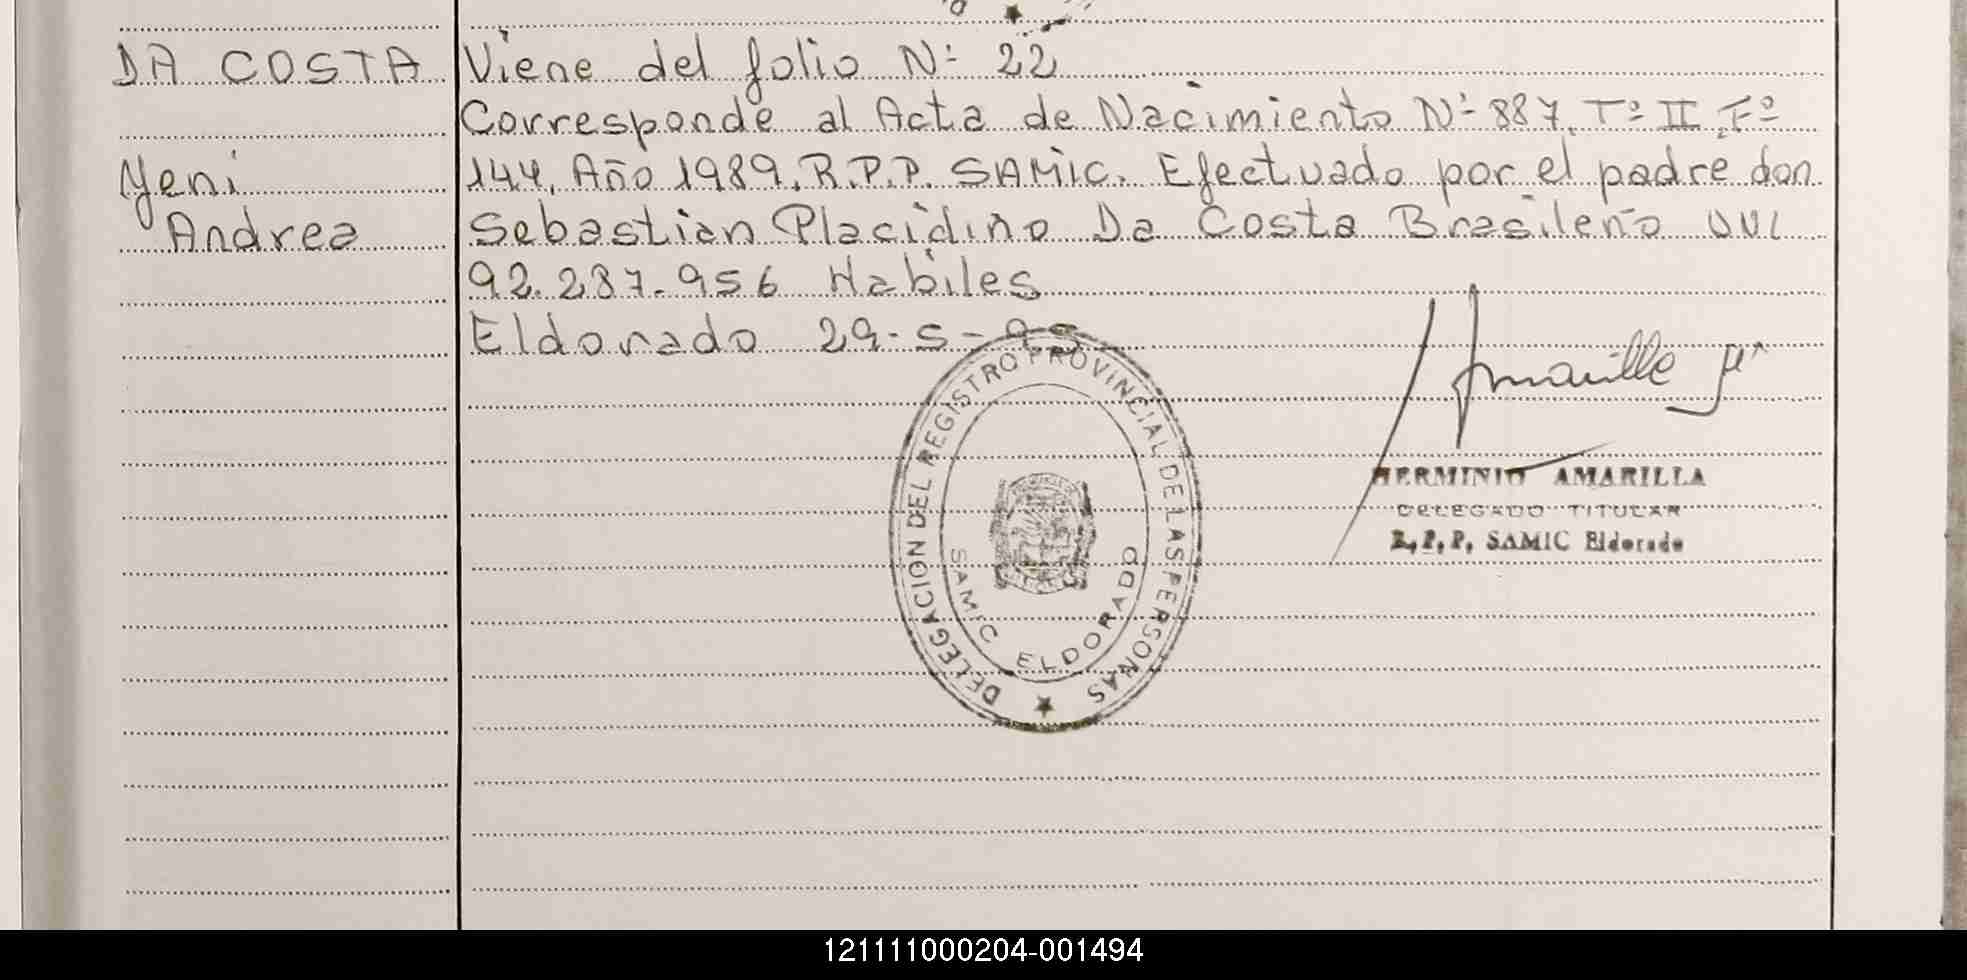 DA COSTA
Yeni
Andrea
Viene del folio Nº 22
Corresponde al Acta de Nacimiento Nº 887, Tº II, Fº
144, Año 1989, R.P.P. SAMIC. Efectuado por el padre don
Sebastian Placidino Da Costa Brasileño
92.287.956 Habiles
Eldorado 29-5-
DELEGACION DEL REGISTRO PROVINCIAL DE LAS PERSONAS
SAMIC ELDORADO
HERMINIO AMARILLA
DELEGADO TITULAR
R.P.P. SAMIC Eldorado
121111000204-001494